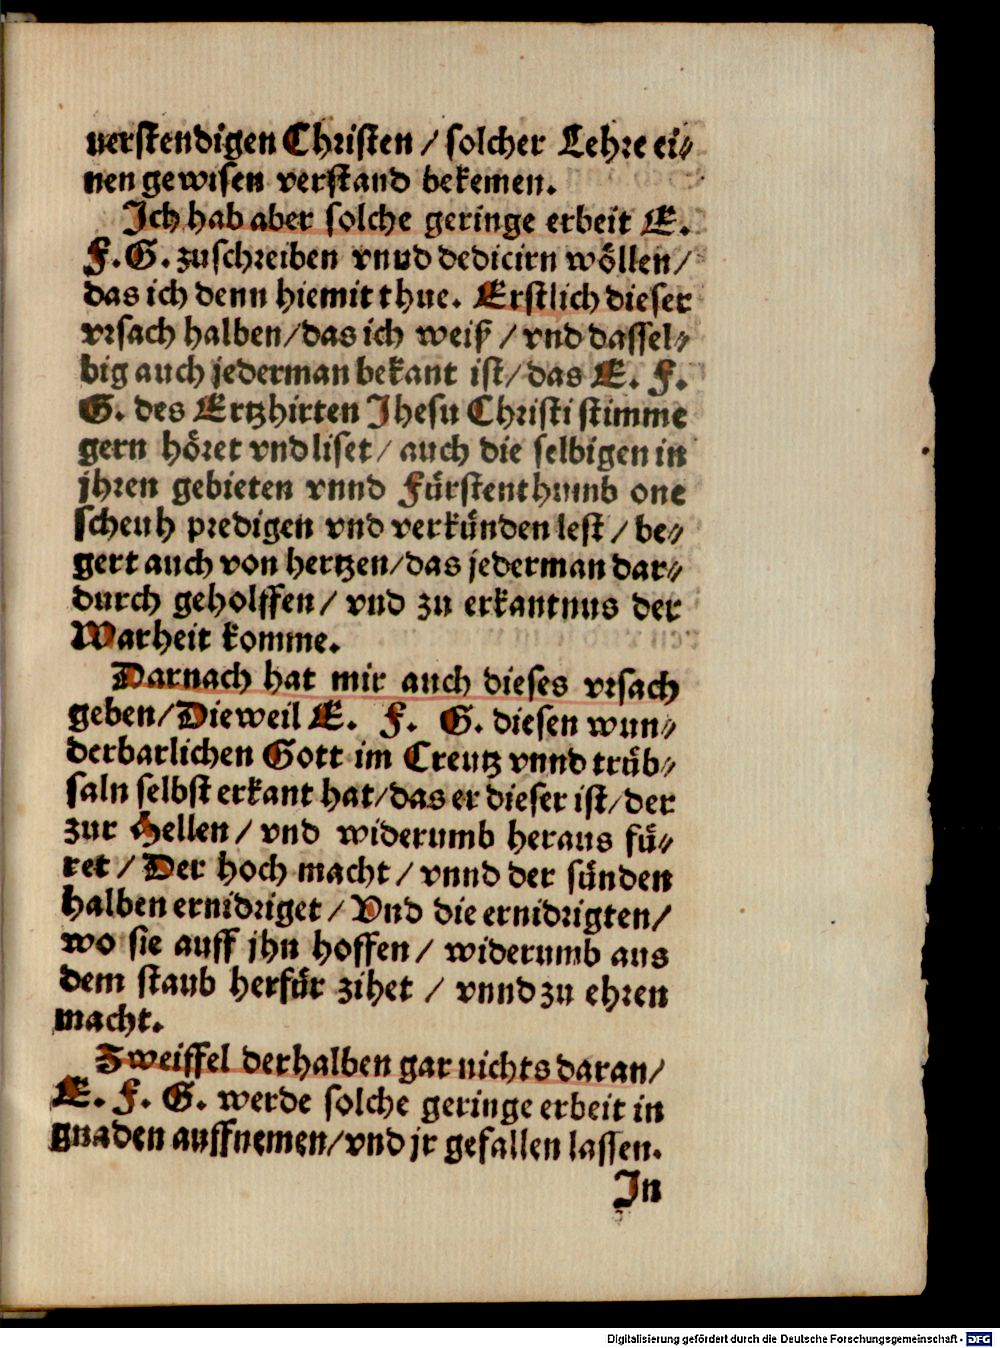 verstendigen Christen / solcher Lehre ei⸗
nen gewisen verstand bekemen.
Ich hab aber solche geringe erbeit E.
F. G. zuschreiben vnnd dedicirn wöllen /
das ich denn hiemit thue. Erstlich dieser
vrsach halben / das ich weiß / vnd dassel⸗
big auch jederman bekant ist / das E. F.
G. des Ertzhirten Jhesu Christi stimme
gern höret vnd liset / auch die selbigen in
jhren gebieten vnnd Fürstenthumb one
scheuh predigen vnd verkünden lest / be⸗
gert auch von hertzen / das jederman dar⸗
durch geholffen / vnd zu erkantnus der
Warheit komme.
Darnach hat mir auch dieses vrsach
geben / Dieweil E. F. G. diesen wun⸗
derbarlichen Gott im Creutz vnnd trüb⸗
saln selbst erkant hat / das er dieser ist / der
zur Hellen / vnd widerumb heraus fü⸗
ret / Der hoch macht / vnnd der sünden
halben ernidriget / Vnd die ernidrigten /
wo sie auff jhn hoffen / widerumb aus
dem staub herfür zihet / vnnd zu ehren
macht.
Zweiffel derhalben gar nichts daran /
E. F. G. werde solche geringe erbeit in
gnaden auffnemen / vnd jr gefallen lassen.
In
Digitalisierung gefördert durch die Deutsche Forschungsgemeinschaft - DFG